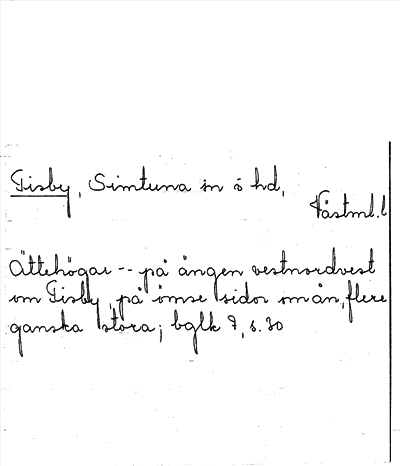 Fisby, Simtuna sn o hd,
Västml.l
Ättehögar -- på ängen vestnordvest
om Fisby, på ömse sidor om ån, flere
ganska stora; bglk 7, s. 30